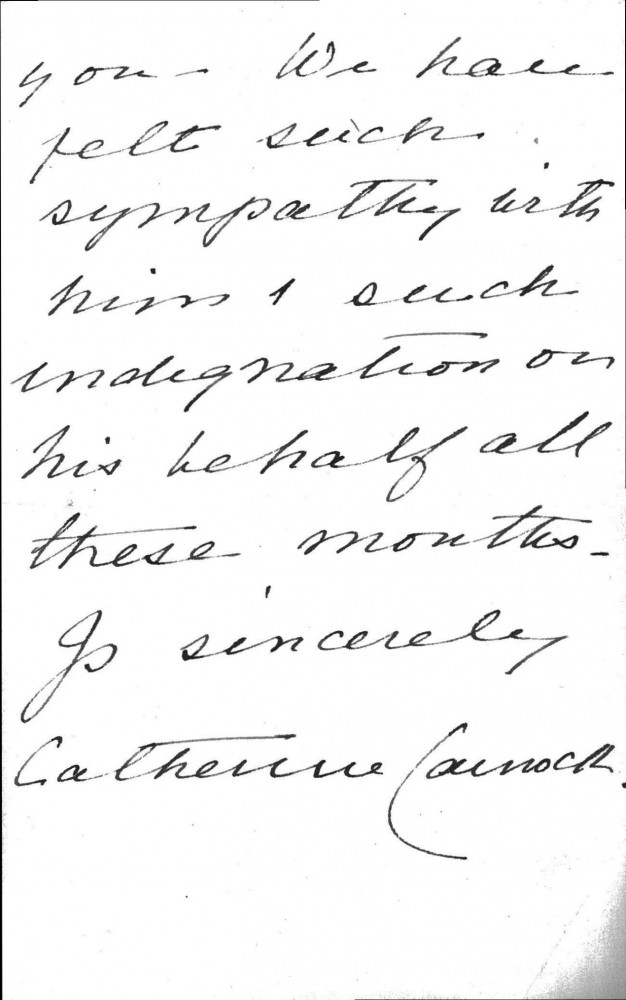 you – We have
felt such
sympathy with
him & such
indignation on
his behalf all
these months –
Yrs sincerely
Catherine Carnock.